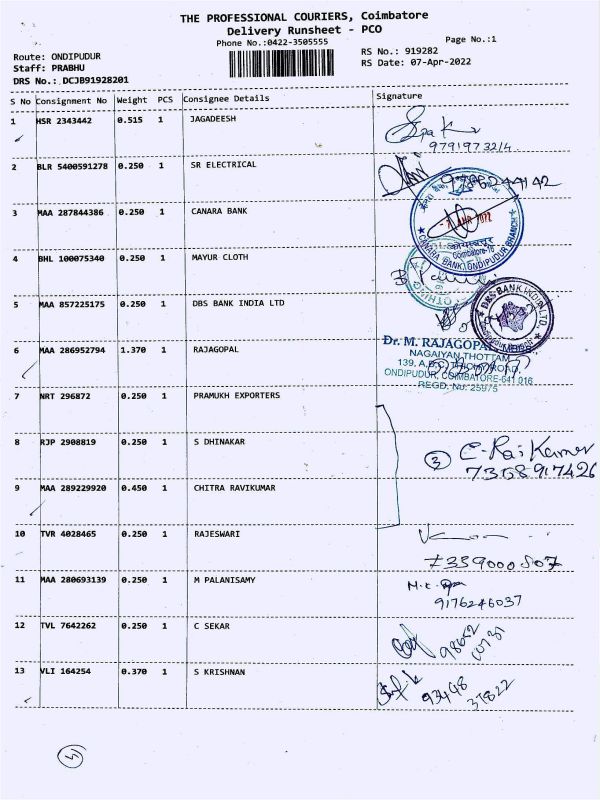 THE PROFESSIONAL COURIERS, Coimbatore
Delivery Runsheet - PCO
Phone No.:0422-3505555
Page No.:1
Route: ONDIPUDUR
Staff: PRABHU
DRS No.: DCJB91928201
RS No.: 919282
RS Date: 07-Apr-2022
S No Consignment No Weight PCS Consignee Details Signature
1 HSR 2343442 0.515 1 JAGADEESH
9791973214
2 BLR 5400591278 0.250 1 SR ELECTRICAL
3 MAA 287844386 0.250 1 CANARA BANK
CANARA BANK, ONDIPUDUR BRANCH
Coimbatore-16
4 BHL 100075340 0.250 1 MAYUR CLOTH
5 MAA 857225175 0.250 1 DBS BANK INDIA LTD
DBS BANK INDIA LTD.
6 MAA 286952794 1.370 1 RAJAGOPAL
Dr. M. RAJAGOPAL
NAGAIYAN THOTTAM
139, ROAD,
ONDIPUDUR, COIMBATORE-641 016
REGD. No: 25975
7 NRT 296872 0.250 1 PRAMUKH EXPORTERS
8 RJP 2908819 0.250 1 S DHINAKAR
3 C-Rai Kumar
7358917426
9 MAA 289229920 0.450 1 CHITRA RAVIKUMAR
10 TVR 4028465 0.250 1 RAJESWARI
7339000807
11 MAA 280693139 0.250 1 M PALANISAMY
9176246037
12 TVL 7642262 0.250 1 C SEKAR
98652
00731
13 VLI 164254 0.370 1 S KRISHNAN
93448
31822